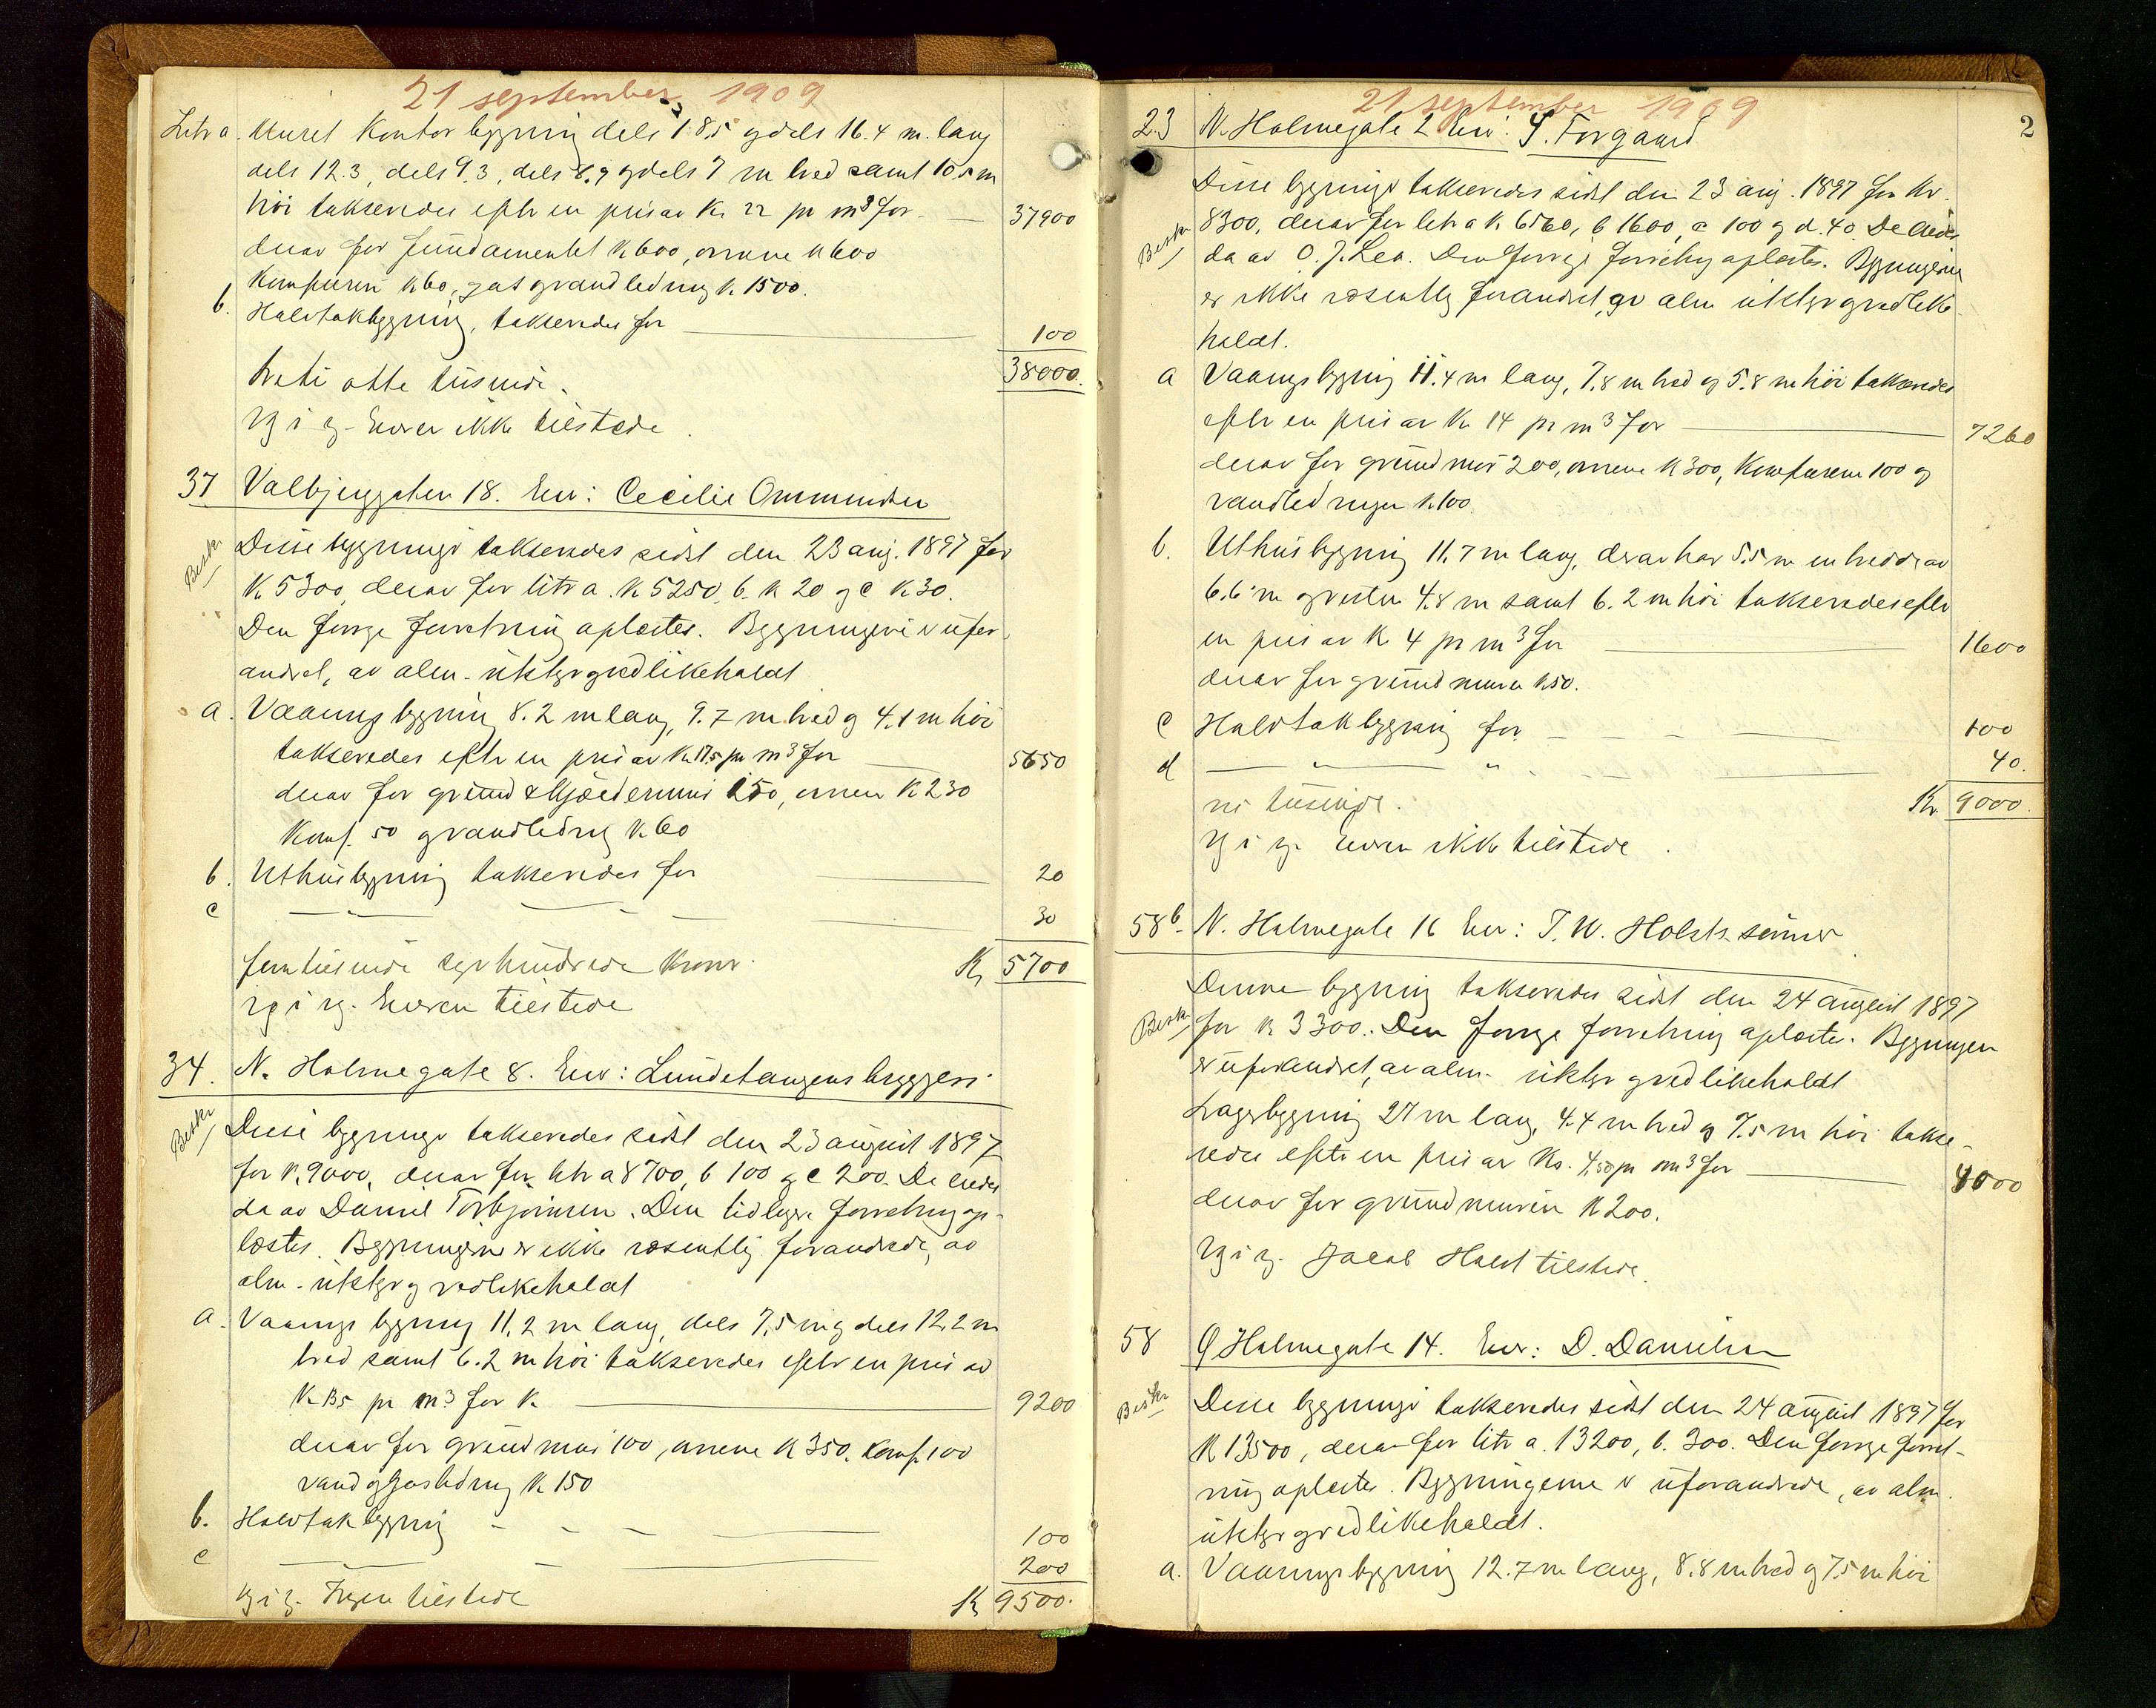 21 september 1909
Litr a. Muret Kontorbygning dels 18.5 og dels 16.4 m. lang
dels 12.3, dels 9.3, dels 8.9 og dels 7 m bred samt 10.5 m
høi takseredes efter en pris av Kr 22 pr m3 for — 37900
derav for fundamentet K 600, ovnene K 600
Komfuren K 60, gas og vandledning K 1500.
b. Halvtakbygning, takseredes for — 100
tretti otte tusinde. 38000.
Eieren ikke tilstede.
37 Valbjerggaten 18. Eier: Cecilie Ommundsen
Beskr. Disse bygninger takseredes sidst den 23 aug. 1897 for
K 5300, derav for litr a. K 5250, b. K 20 og c K 30.
Den forrige forretning oplæstes. Bygningene er ufor-
andret, av alm. utstyr og vedlikeholdt
a. Vaaningsbygning 8.2 m lang, 9.7 m bred og 4.1 m høi
takseredes efter en pris av K 17.5 pr m3 for — 5650
derav for grund & kjældermur 150, ovnene K 230
Komf. 50 og vandledning K 60
b. Uthusbygning takseredes for — 20
c — " — 30
femtusinde syvhundrede Kroner. Kr 5700
Eieren tilstede
34. N. Holmegate 8. Eier: Lundetangens bryggeri
Beskr. Disse bygninger takseredes sidst den 23 august 1897
for K. 9000, derav for litr a 8700, b 100 og c 200. De eiedes
da av Daniel Torbjørnsen. Den tidligere forretning op-
læstes. Bygningene er ikke væsentlig forandrede, av
alm. utstyr og vedlikeholdt
a. Vaaningsbygning 11.2 m lang, dels 7.5 m og dels 12.2 m
bred samt 6.2 m høi takseredes efter en pris av
K 13.5 pr m3 for K. — 9200
derav for grundmur 100, ovnene K 350, Komf. 100
vand og gasledning K 150
b. Halvtakbygning — 100
c — 200
Ingen tilstede Kr 9500.
21 september 1909
2
23 N. Holmegate 2 Eier: Forgaard
Disse bygninger takseredes sidst den 23 aug. 1897 for Kr.
Beskr 8300, derav for litr a K 6560, b 1600, c 100 og d. 40. De eiedes
da av O. J. Lea. Den forrige forretning oplæstes. Bygningerne
er ikke væsentlig forandret, av alm utstyr og vedlike-
holdt.
a Vaaningsbygning 11.4 m lang, 7.8 m bred og 5.8 m høi takseredes
efter en pris av K 14 pr m3 for — 7260
derav for grundmur 200, ovnene K 300, Komfurene 100 og
vandledningen K 100.
b. Uthusbygning 11.7 m lang, derav har 5.5 m en bredde av
6.6 m og resten 4.8 m samt 6.2 m høi takseredes efter
en pris av K 4 pr m3 for — 1600
derav for grundmuren K 50.
c Halvtakbygning for — 100
d — " — " 40.
ni tusinde. Kr 9000.
Eieren ikke tilstede.
58b. N. Holmegate 16 Eier: T. W. Holsts sønner
Denne bygning takseredes sidst den 24 august 1897
Beskr for K 3300. Den forrige forretning oplæstes. Bygningen
er uforandret, av alm. utstyr og vedlikeholdt
Lagerbygning 27 m lang, 4.4 m bred og 7.5 m høi takse-
redes efter en pris av Kr. 4,50 pr m3 for — 4000
derav for grundmuren K 200.
Jacob Holst tilstede.
58 Ø Holmegate 14. Eier: D. Danielsen
Beskr Disse bygninger takseredes sidst den 24 august 1897 for
K 13500, derav for litr a. 13200, b. 300. Den forrige forret-
ning oplæstes. Bygningerne er uforandrede, av alm.
utstyr og vedlikeholdt.
a. Vaaningsbygning 12.7 m lang, 8.8 m bred og 7.5 m høi